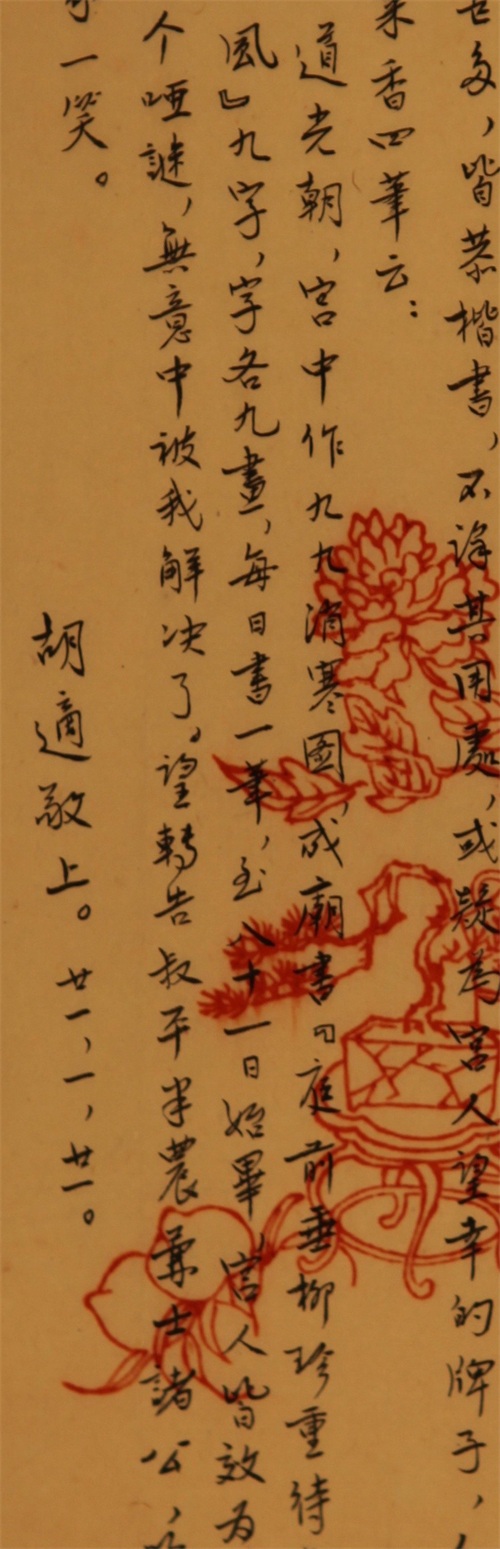 多，皆恭楷書，不詳其用處，或疑為宮人望幸的牌子，
香四筆云：
道光朝，宮中作九九消寒圖，成廟書『庭前垂柳珍重待
風』九字，字各九畫，每日書一筆，至八十一日始畢，宮人皆效为
个啞謎，無意中被我解决了。望轉告叔平半農兼士諸公，
一笑。
胡適敬上。廿一，一，廿一。